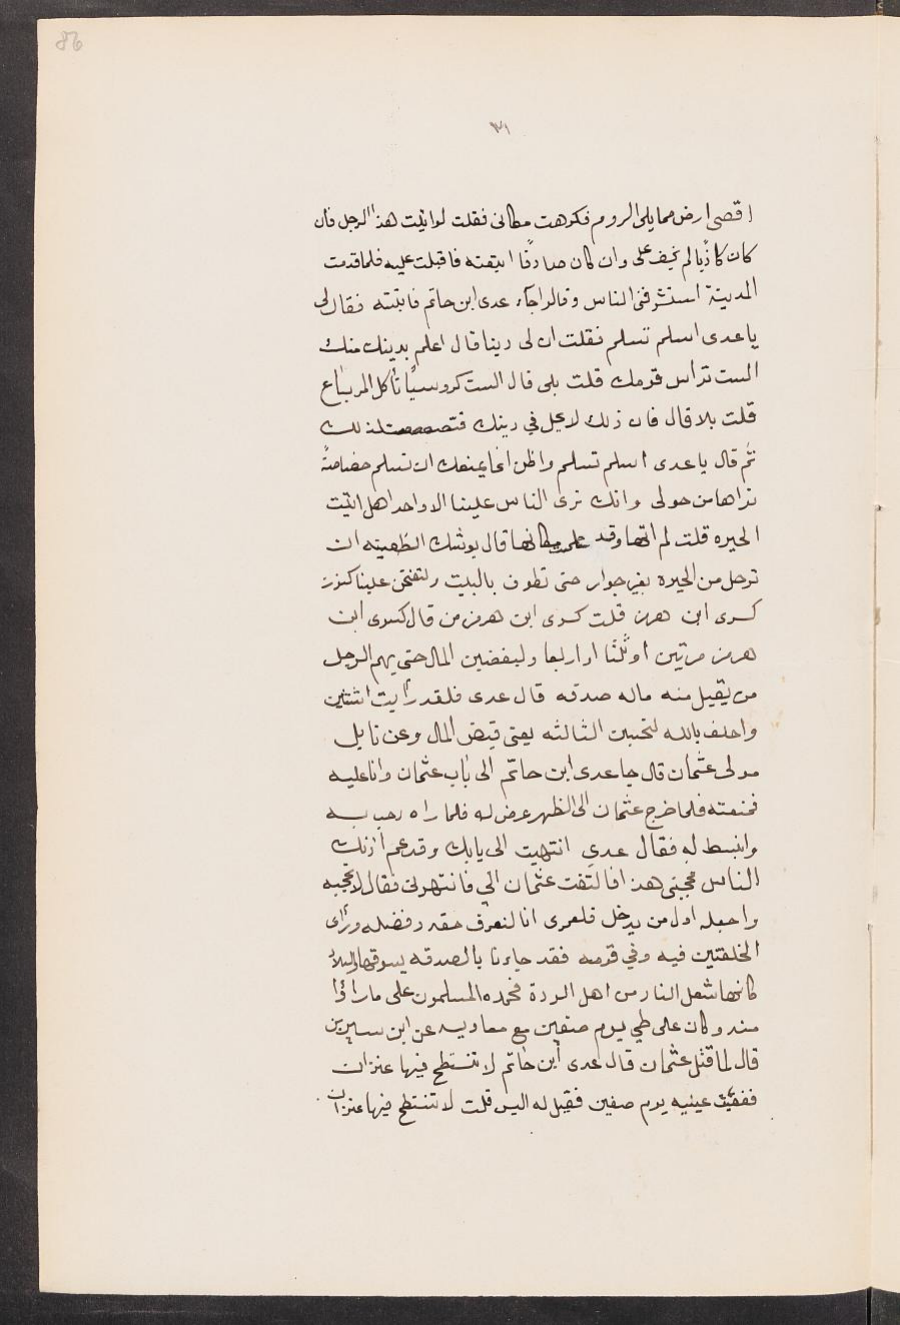 86
٣١
اقصى ارض مما يلى الروم فكرهت مكانى فقلت لو اتيت هذا الرجل فان
كان كاذبا لم يخف على وان كان صادقا اتبعته فاقبلت عليه فلما قدمت
المدينة استشرفنى الناس وقالوا جآء عدى ابن حاتم فاتيته فقال لى
يا عدى اسلم تسلم فقلت ان لى دينا قال اعلم بدينك منك
الست ترأس قومك قلت بلى قال الست كروسيًا تأكل المرباع
قلت بلا قال فان ذلك لا يحل في دينك لذلك
ثم قال يا عدى اسلم تسلم واظن انما يمنعك ان تسلم خصاصة
تراها من حولى وانك ترى الناس علينا الا واحدا هل اتيت
الحيره قلت لم اتها وقد علمت مكانها قال يوشك الظعينه ان
ترحل من الحيرة بغير جوار حتى تطوف بالبيت ولتفتحن علينا كنوز
كسرى ابن هرمز قلت كسرى ابن هرمز من قال كسرى ابن
هرمز مرتين او ثلثا او اربعا وليفضين المال حتى يهم الرجل
من يقبل منه ماله صدقه قال عدى فلقد رأيت اثنتين
واحلف بالله لتجيئن الثالثه يعنى قبض المال وعن نايل
مولى عثمان قال جا عدى ابن حاتم الى باب عثمان وانا عليه
فمنعته فلما خرج عثمان الى الظهر عرض له فلما راه رحب به
وانبسط له فقال عدي انتهيت الى بابك وقد عم اذنك
الناس فحجبنى هذا فالتفت عثمان الي فانتهرنى فقال لا تحجبه
واجعله اول من يدخل فلعمرى انا لنعرف حقه وفضله ورأى
الخلفتين فيه وفي قومه فقد جاءنا بالصدقه يسوقها والبلاد
كانها شعل النار من اهل الردة فحمده المسلمون على ما راؤا
منه وكان على طي يوم صفين مع معاويه عن ابن سيرين
قال لما قتل عثمان قال عدى أبن حاتم لا تنتطح فيها عنزان
ففقيت عينيه يوم صفين فقيل له اليس قلت لا تنتطح فيها عنزان